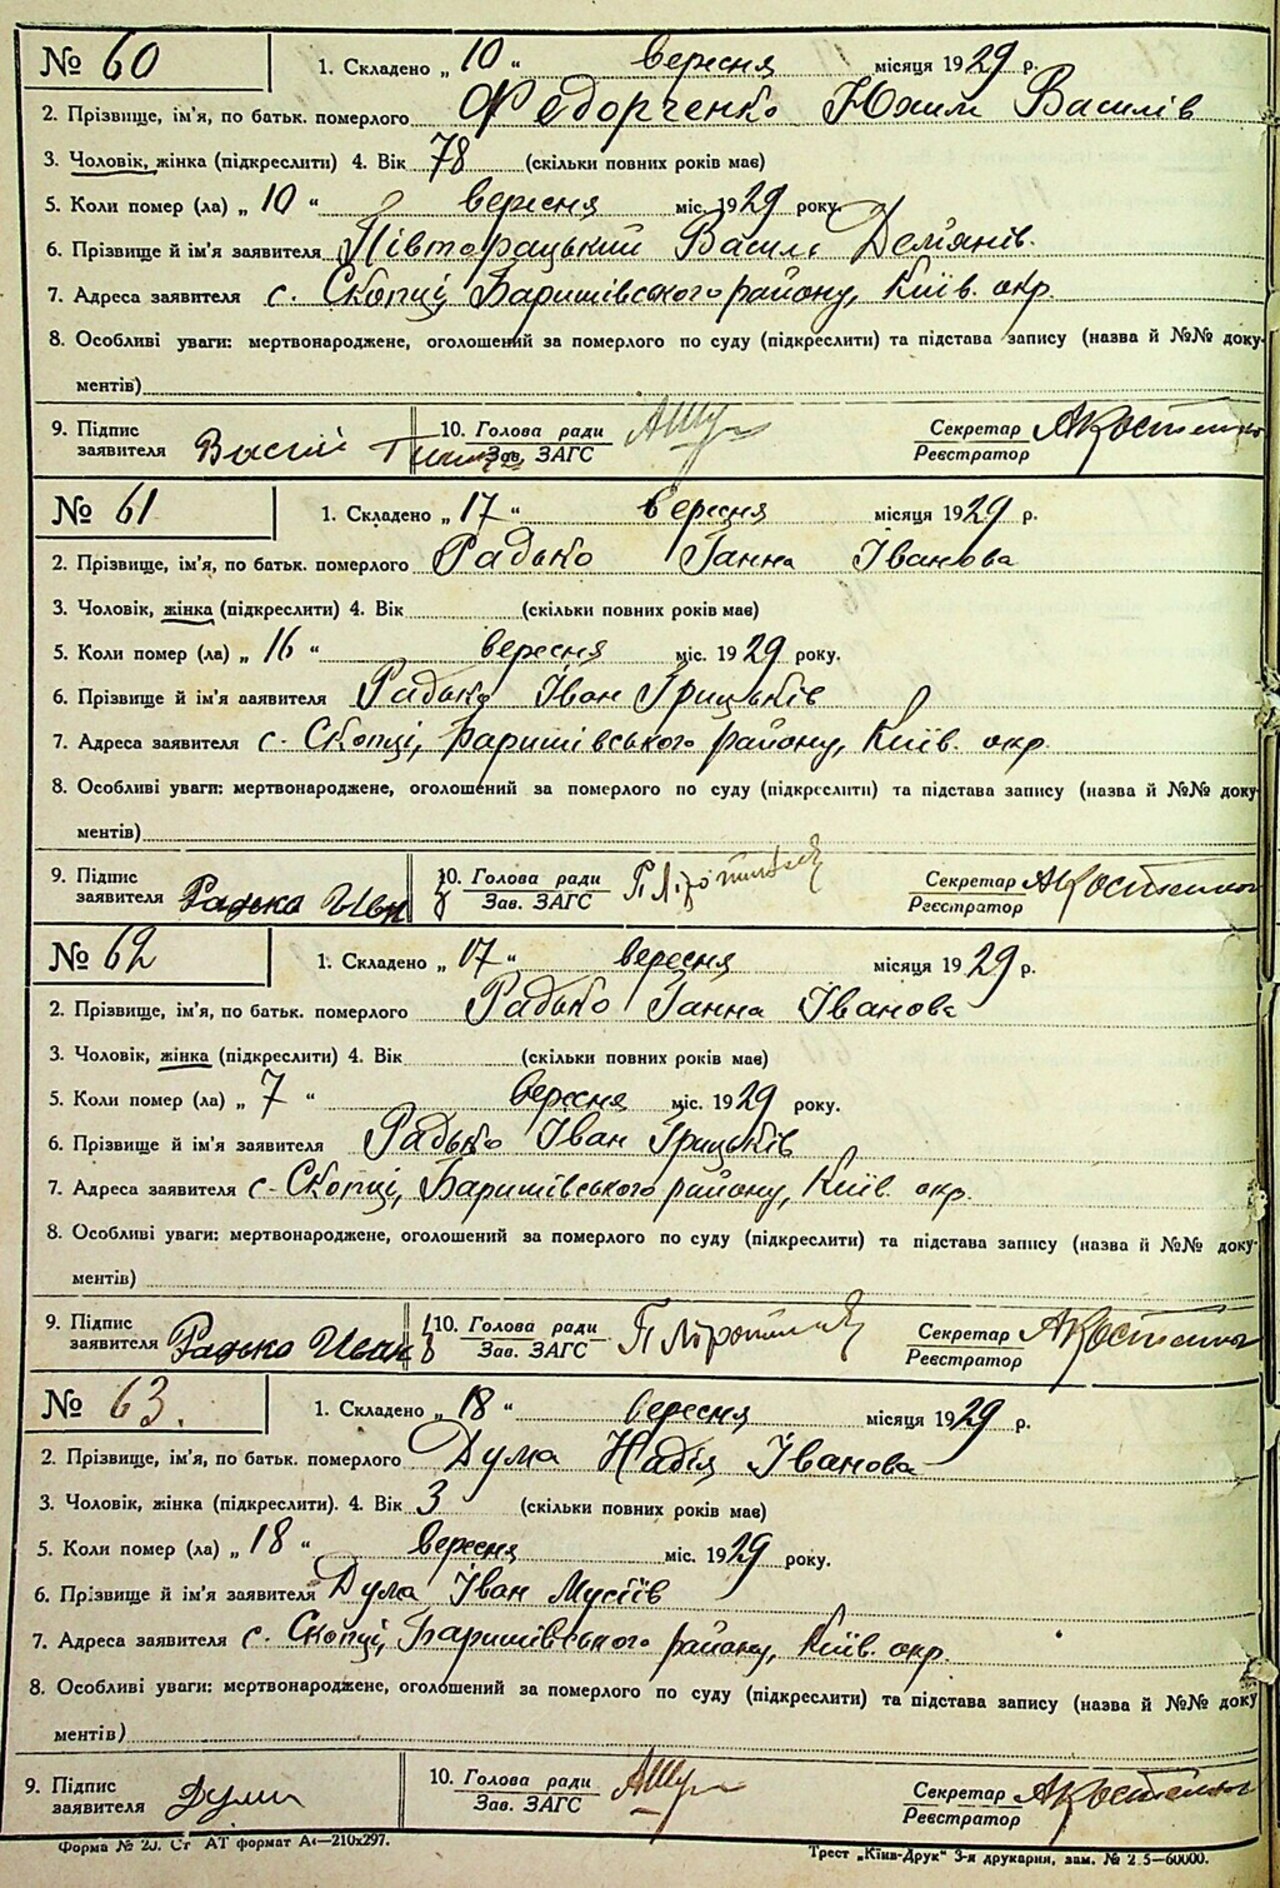 № 60 1. Складено „ 10 “ вересня місяця 1929 р.
2. Прізвище, ім'я, по батьк. померлого Федорченко Юхим Василів
3. Чоловік, жінка (підкреслити) 4. Вік 78 (скільки повних років має)
5. Коли помер (ла) „ 10 “ вересня міс. 1929 року.
6. Прізвище й ім'я заявителя Півторацький Василь Дем'янів.
7. Адреса заявителя с. Скопці, Баришівського району, Київ. окр.
8. Особливі уваги: мертвонароджене, оголошений за померлого по суду (підкреслити) та підстава запису (назва й №№ доку-
ментів)
9. Підпис 10. Голова ради Секретар АКостенко
заявителя Зав. ЗАГС Реєстратор
№ 61 1. Складено „ 17 “ вересня місяця 1929 р.
2. Прізвище, ім'я, по батьк. померлого Радько Ганна Іванова
3. Чоловік, жінка (підкреслити) 4. Вік (скільки повних років має)
5. Коли помер (ла) „ 16 “ вересня міс. 1929 року.
6. Прізвище й ім'я заявителя Радько Іван Грицьків
7. Адреса заявителя с. Скопці, Баришівського району, Київ. окр.
8. Особливі уваги: мертвонароджене, оголошений за померлого по суду (підкреслити) та підстава запису (назва й №№ доку-
ментів)
9. Підпис 10. Голова ради Секретар АКостенко
заявителя Радько Иван Зав. ЗАГС Реєстратор
№ 62 1. Складено „ 17 “ вересня місяця 1929 р.
2. Прізвище, ім'я, по батьк. померлого Радько Ганна Іванова
3. Чоловік, жінка (підкреслити) 4. Вік (скільки повних років має)
5. Коли помер (ла) „ 7 “ вересня міс. 1929 року.
6. Прізвище й ім'я заявителя Радько Іван Грицьків
7. Адреса заявителя с. Скопці, Баришівського району, Київ. окр.
8. Особливі уваги: мертвонароджене, оголошений за померлого по суду (підкреслити) та підстава запису (назва й №№ доку-
ментів)
9. Підпис 10. Голова ради Секретар АКостенко
заявителя Радько Иван Зав. ЗАГС Реєстратор
№ 63. 1. Складено „ 18 “ вересня місяця 1929 р.
2. Прізвище, ім'я, по батьк. померлого Дума Надія Іванова
3. Чоловік, жінка (підкреслити). 4. Вік 3 (скільки повних років має)
5. Коли помер (ла) „ 18 “ вересня міс. 1929 року.
6. Прізвище й ім'я заявителя Дума Іван Мусіїв
7. Адреса заявителя с. Скопці, Баришівського району, Київ. окр.
8. Особливі уваги: мертвонароджене, оголошений за померлого по суду (підкреслити) та підстава запису (назва й №№ доку
ментів)
9. Підпис 10. Голова ради Секретар АКостенко
заявителя Зав. ЗАГС Реєстратор
Форма № 20. Ст АТ формат А4—210х297. Трест „Київ-Друк“ 3-я друкарня, зам. № 2 5—60000.